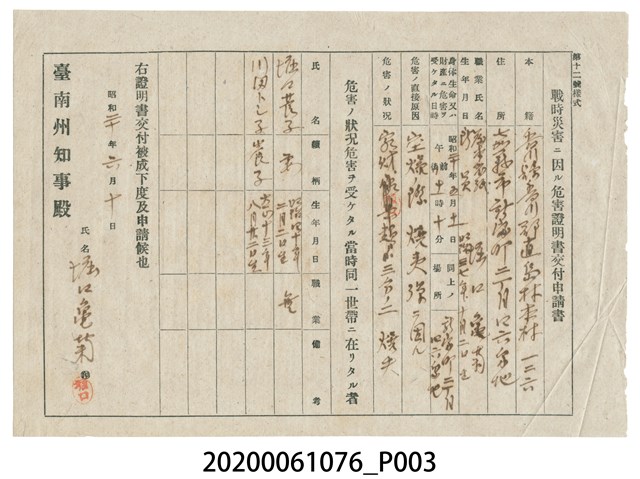 第十二號樣式
戰時災害ニ因ル危害證明書交付申請書
本籍 香川縣香川郡直島村本村一三六
住所 二丁目六番地
職業氏名 堀口亀菊
生年月日
身体生命又ハ財產ニ危害ヲ受ケタル日時 昭和二十年五月十一日 午前十一時十分
同上ノ場所
危害ノ直接原因 空爆ノ際燒夷彈ニ因ル
危害ノ狀況 家財 三分ノ二燒失
危害ノ狀況危害ヲ受ケタル當時同一世帶ニ在リタル者
氏名 續柄 生年月日 職業 備考
堀口 妻 明治四十年二月二日生 無
川田トシ子 養子 大正十三年八月廿二日生
右證明書交付被成下度及申請候也
昭和二十年六月十日
氏名 堀口亀菊
臺南州知事殿
20200061076_P003